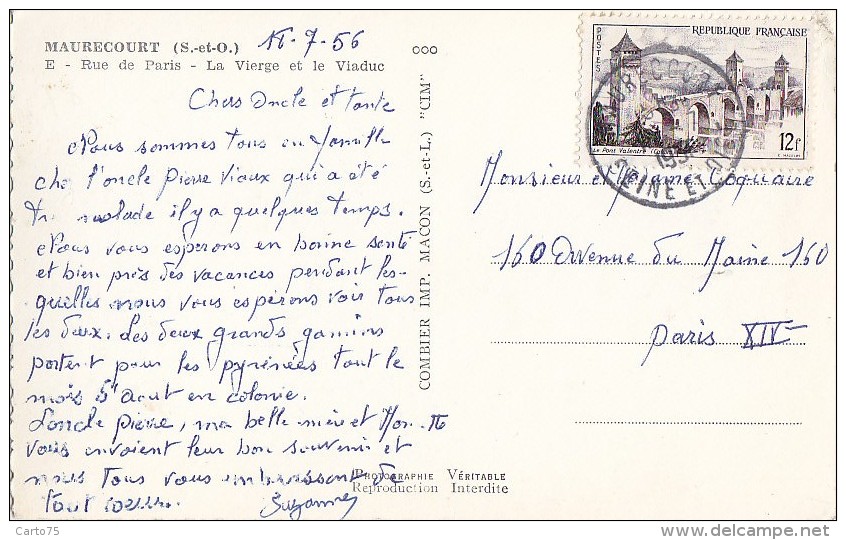 MAURECOURT (S.-et-O.)
7-56
E - Rue de Paris - La Vierge et le Viaduc
Chers Oncle et tante
Nous sommes tous en famille
chez l'oncle Pierre Viaux qui a été
malade il y a quelques temps.
Nous vous espérons en bonne santé
et bien près des vacances pendant les-
quelles nous vous espérons voir tous
les deux. Les deux grands gamins
partent pour les pyrénées tout le
mois d'Aout en colonie.
L'oncle Pierre, ma belle mère et
vous envoient leur bon souvenir et
nous tous vous embrassons de
tout coeur.
Suzanne
COMBIER IMP. MACON (S.-et-L.) "CIM"
PHOTOGRAPHIE VÉRITABLE
Reproduction Interdite
POSTES
REPUBLIQUE FRANÇAISE
Le Pont Valentré
12f
SEINE ET OISE
Monsieur et Madame Coquaire
160 Avenue du Maine 160
Paris XIV
Carto75
www.delcampe.net